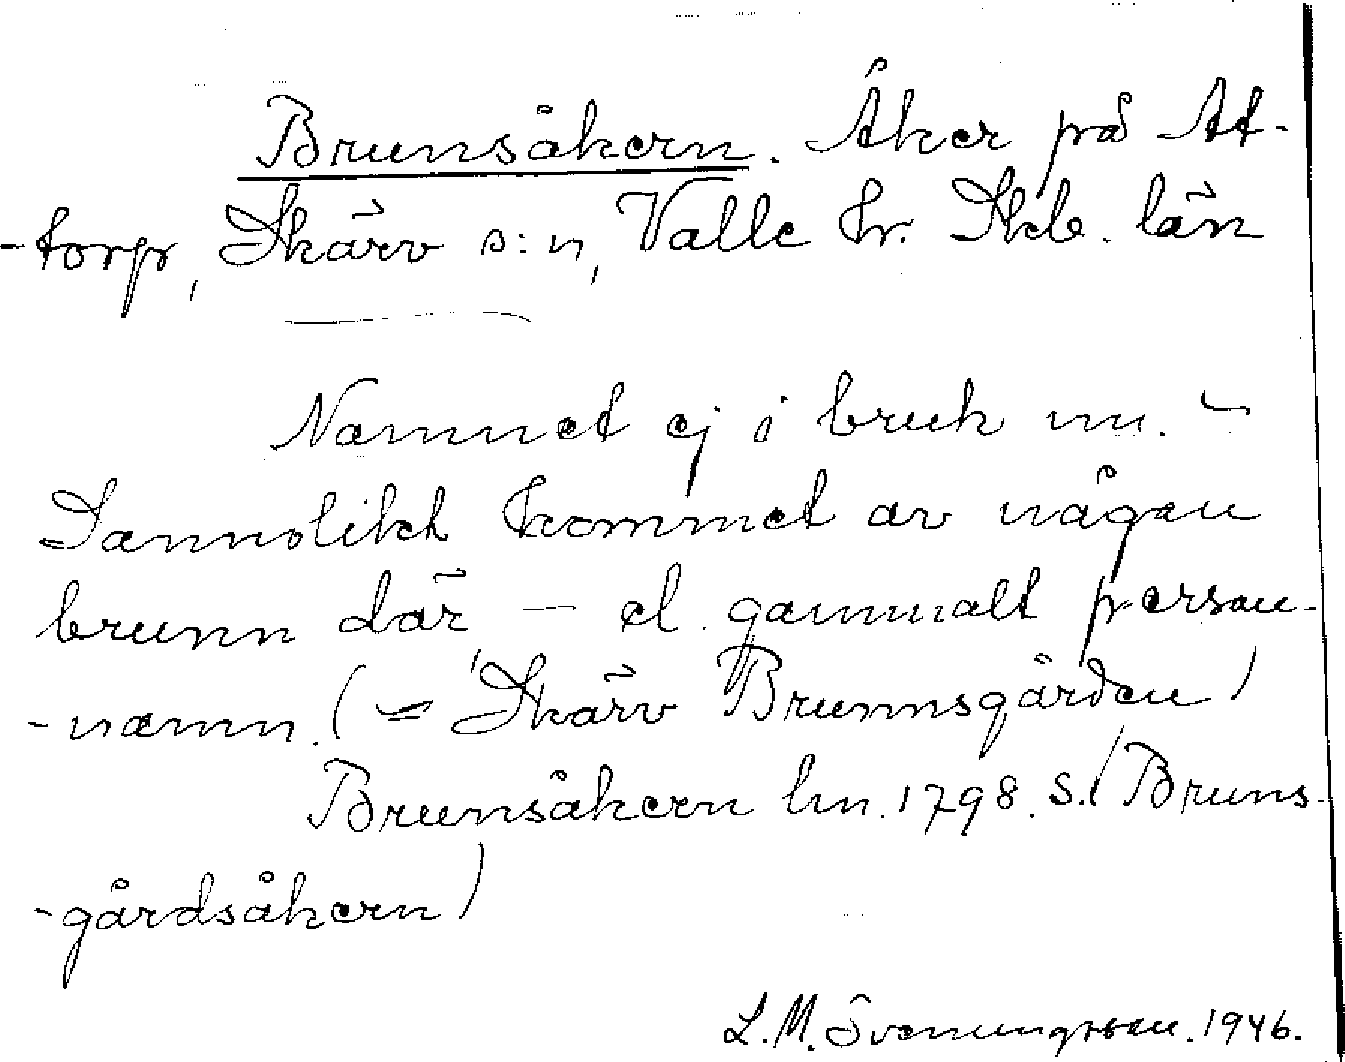 Brunsåkern. Åker på At-
-torp, Skärv s:n, Valle hr. Skb. län
Namnet ej i bruk nu. -
Sannolikt kommet av någon
brunn där - el. gammalt person-
-namn. (= Skärv Brunnsgården)
Brunsåkern lm. 1798. S. (Bruns-
-gårdsåkern)
L. M. Svenungsson. 1946.